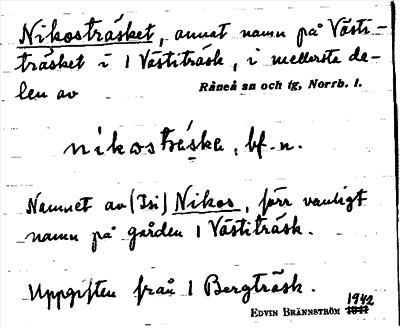 Nikosträsket, annat namn på Västi-
träsket i 1 Västiträsk, i mellersta de-
len av Råneå sn och tg, Norrb. l.
nikosträska, bf. n.
Namnet av (Isi) Nikos, förr vanligt
namn på gården 1 Västiträsk.
Uppgiften från 1 Bergträsk.
1942
EDVIN BRÄNNSTRÖM 1941